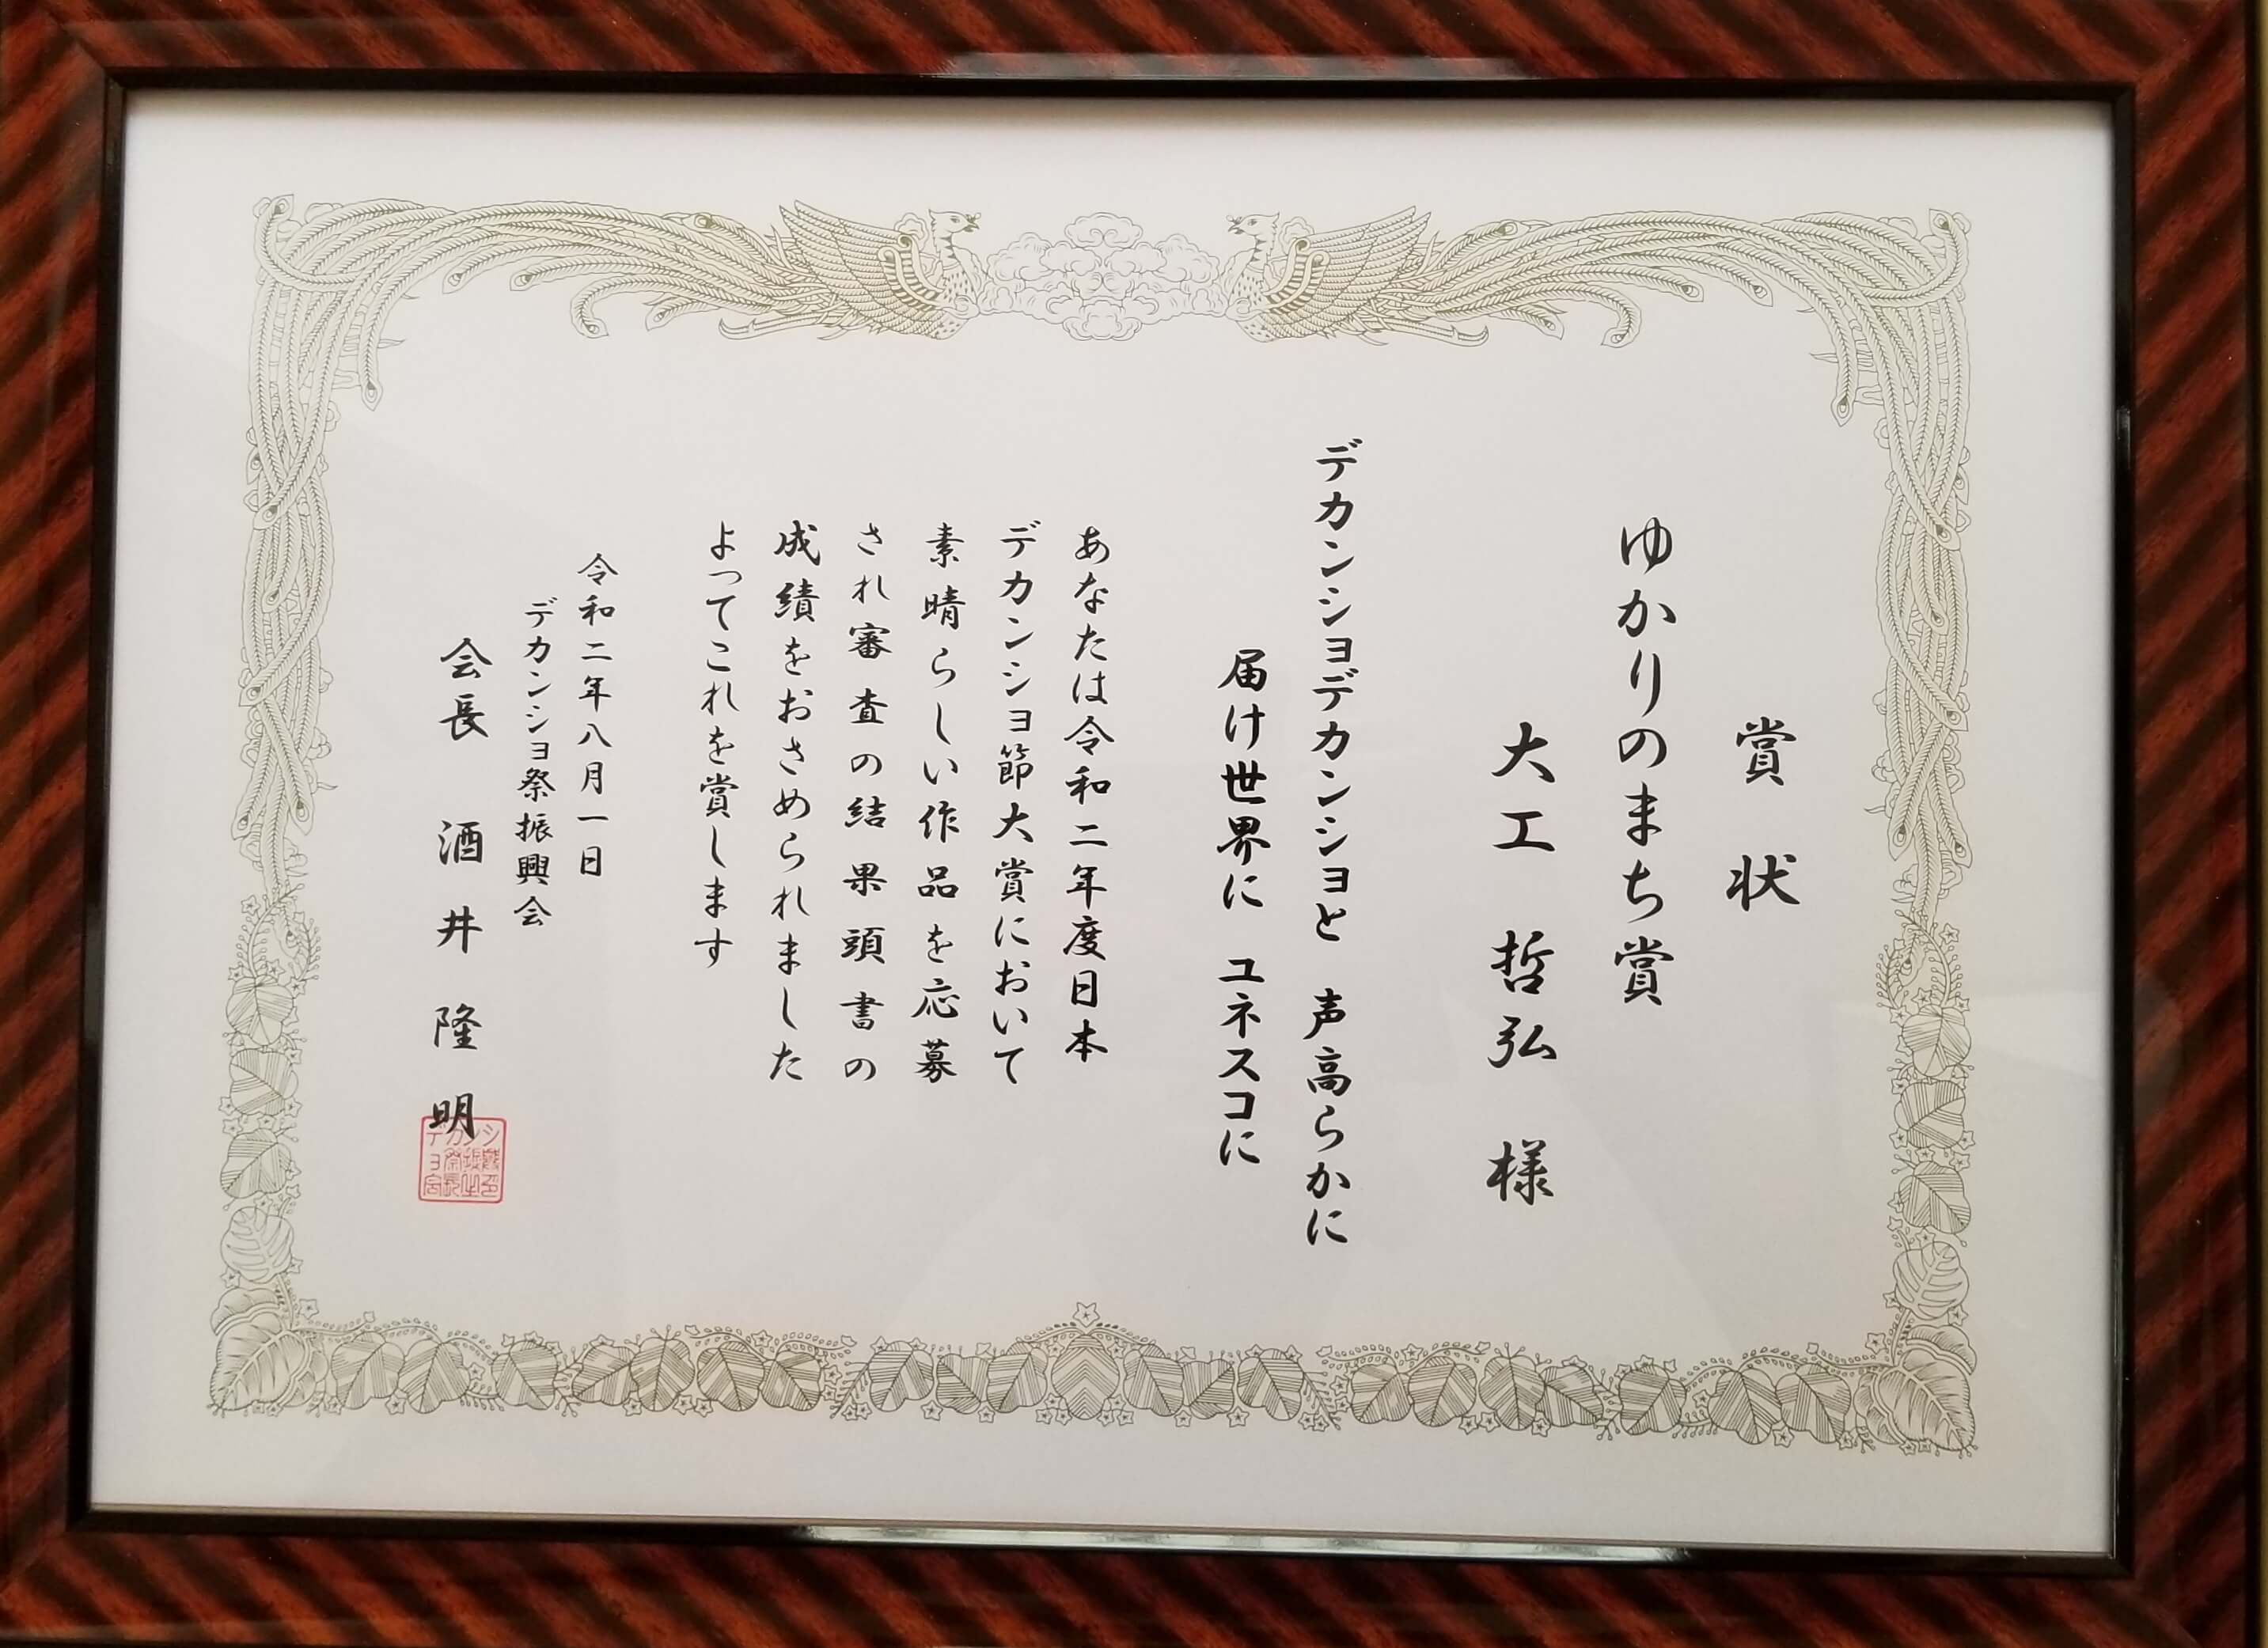 賞状
ゆかりのまち賞
大工 哲弘 様
デカンショデカンショと 声高らかに
届け世界に ユネスコに
あなたは令和二年度日本
デカンショ節大賞において
素晴らしい作品を応募
され審査の結果頭書の
成績をおさめられました
よってこれを賞します
令和二年八月一日
デカンショ祭振興会
会長 酒井隆明